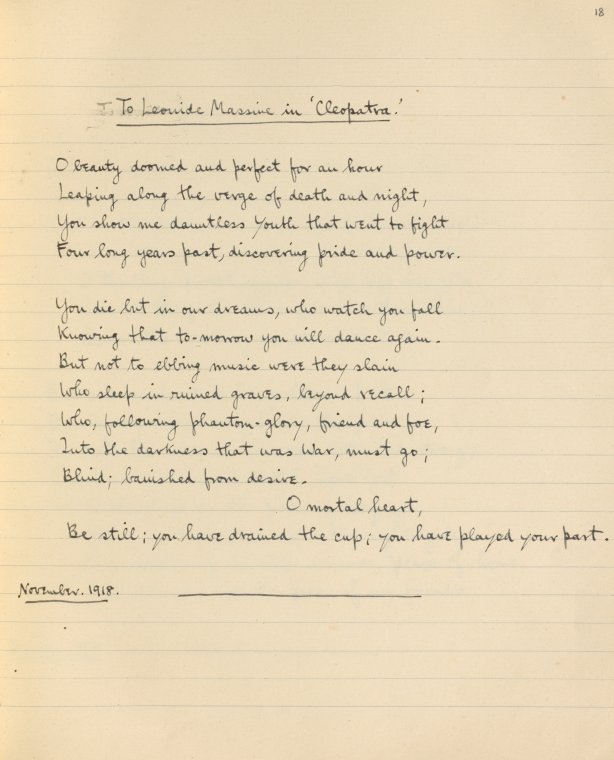 18
To Leonide Massine in 'Cleopatra.'
O beauty doomed and perfect for an hour
Leaping along the verge of death and night,
You show me dauntless Youth that went to fight
Four long years past, discovering pride and power.
You die but in our dreams, who watch you fall
Knowing that to-morrow you will dance again.
But not to ebbing music were they slain
Who sleep in ruined graves, beyond recall;
Who, following phantom-glory, friend and foe,
Into the darkness that was War, must go;
Blind; banished from desire.
O mortal heart,
Be still; you have drained the cup; you have played your part.
November. 1918.